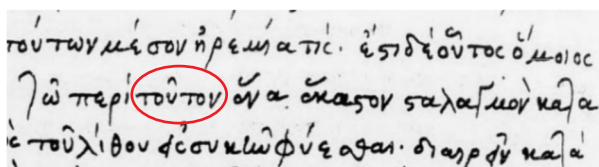 τούτων μέσον ἠρεμία τίς. ἔστι δὲ οὗτος ὅμοιος
τῶ περὶ τοῦτον ἕνα ἕκαστον σταλαγμὸν κατα
τοῦ λίθου φύεσθαι· διαιρεῖν κατὰ